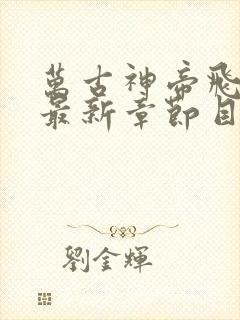 萬古神帝飛
最新章節目
劉金輝